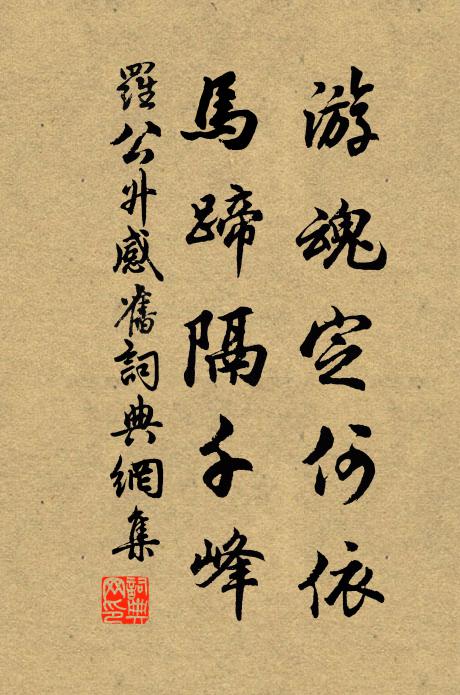 游魂定何依
馬蹄隔千峰
羅公升感舊詞典網集
詞典網印